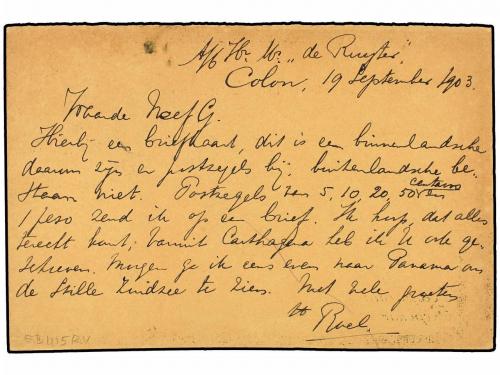 a/b Hr. Ms. „de Ruyter”,
Colon, 19 September 1903.
Waarde Neef G.
Hierbij een briefkaart, dit is een binnenlandsche
daarom zijn er postzegels bij, buitenlandsche be-
staan niet. Postzegels van 5, 10, 20, 50 centavos
1 peso zend ik op een brief. Ik hoop, dat alles
terecht komt; vanuit Carthagena heb ik U ook ge-
schreven. Morgen ga ik eens even naar Panama om
de Stille Zuidzee te zien. Met vele groeten
Roel.